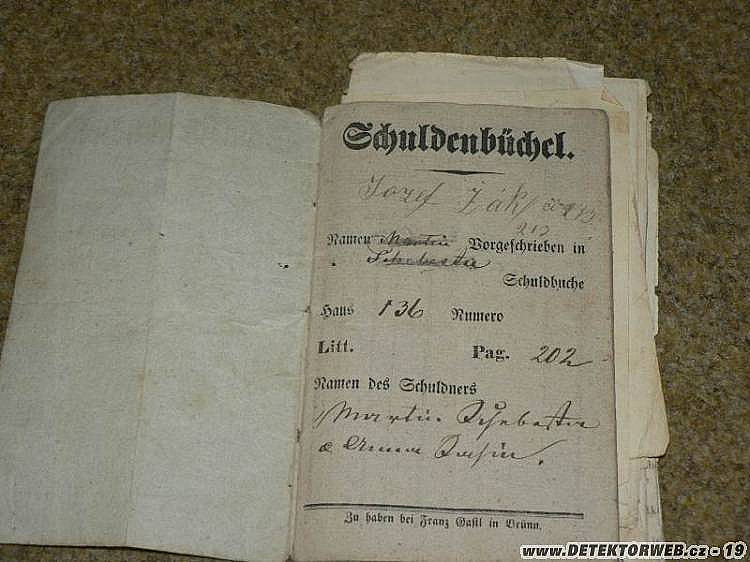 Schuldenbüchel.
Jozef Žák
Namen Martin Vorgeschrieben in
Schebesta
Schuldbuche
Haus 136 Numero
Litt. Pag. 202
Namen des Schuldners
Martin Schebesta
& Anna
Zu haben bei Franz Gastl in Brünn.
www.DETEKTORWEB.cz - 19